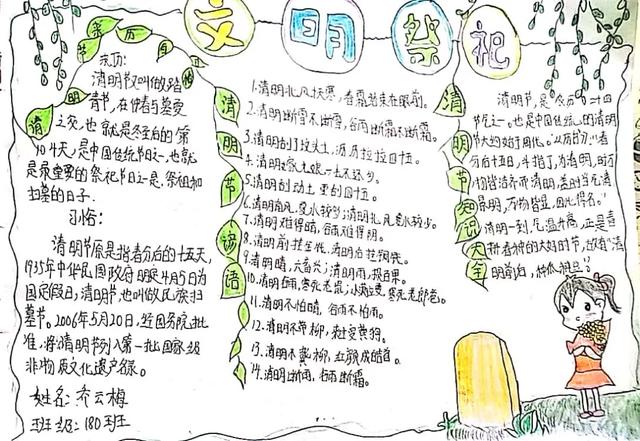 文明祭祀
清明节的来历与习俗
来历:
清明节又叫做踏
青节,在仲春与暮春
之交,也就是冬至后的第
104天,是中国传统节日之一,也就
是最重要的祭祀节日之一是,祭祖和
扫墓的日子.
习俗:
清明节原是指春分后的十五天,
1935年中华民国政府明定4月5日为
国定假日,清明节,也叫做民族扫
墓节。2006年5月20日,经国务院批
准,将清明节列入第一批国家级
非物质文化遗产名录。
姓名:乔云梅
班级:180班
清明节谚语
1.清明北风十天寒,春霜结束在眼前。
2.清明断雪不断雪,谷雨断霜不断霜。
3.清明刮了坟头土,沥沥拉拉四十五。
4.清明
5.清明刮动土,要刮四十五。
6.清明南风,夏水较多;清明北风,夏水较少。
7.清明难得晴,谷雨难得阴。
8.清明前后
9.清明晴,六畜兴;清明雨,损百果。
10.清明
11.清明不怕晴,谷雨不怕雨。
12.清明不带柳,来世变黄狗。
13.清明不戴柳,红颜成皓首。
14.清明断雪,谷雨断霜。
清明节知识大全
清明节,是农历二十四
节气之一。也是中国传统的清明
节大约始于周代。"历书":"春
分后十五日,斗指丁,为清明,时万
物皆洁齐而清明,盖时当气清
景明,万物皆显,因此得名。"
清明一到,气温升高,正是春
耕春种的大好时节,故有"清
明前后,种瓜点豆"。